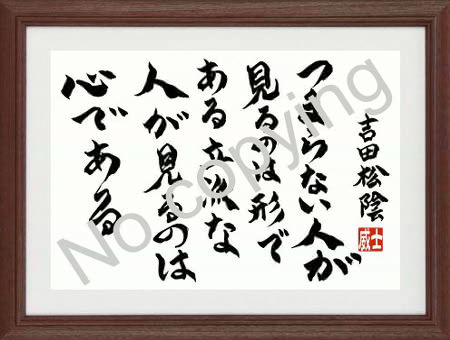 吉田松陰
士威
つまらない人が
見るのは形で
ある立派な
人が見るのは
心である
No copying